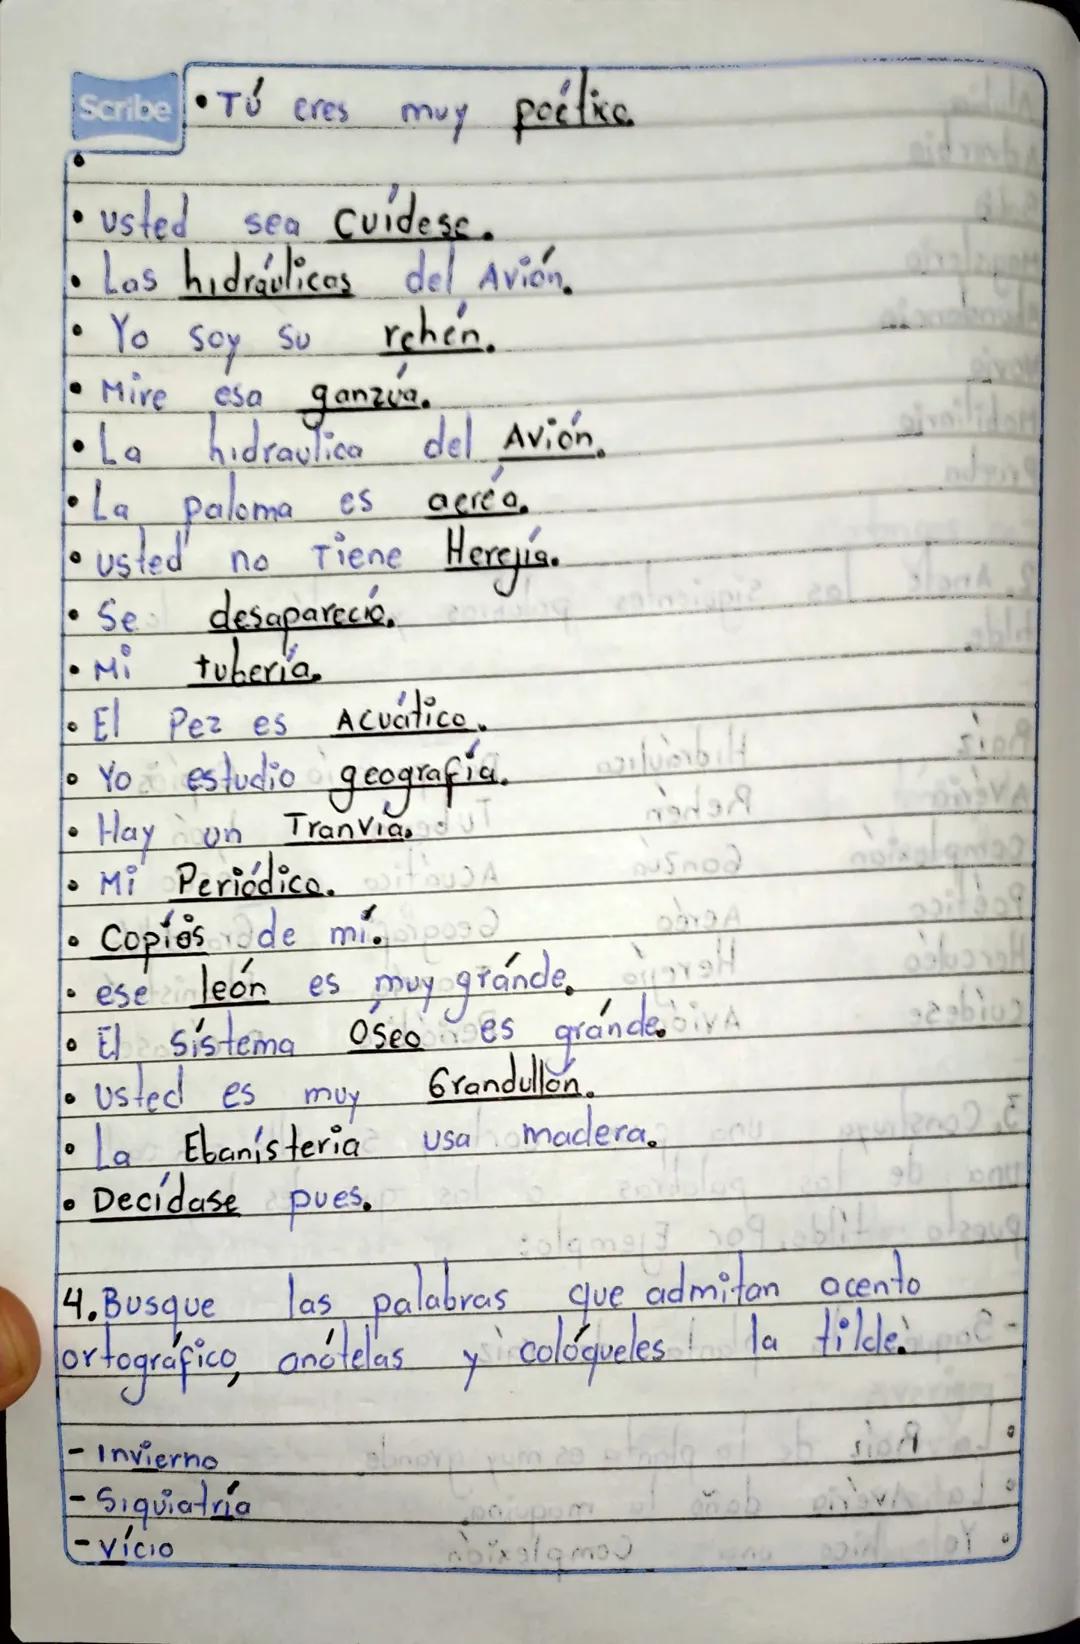 Scribe • Tú eres muy poético.
• usted sea Cuídese.
• Las hidráulicas del Avión.
• Yo soy su rehén.
• Mire esa ganzúa.
• La hidraulica del Avión.
• La paloma es aeréa.
• usted no Tiene Herejía.
• Se desapareció.
• Mi tubería.
• El Pez es Acuático.
• Yo estudio geografía.
• Hay un Tranvía.
• Mi Periódico.
• Copíos de mí.
• ese león es muy gránde.
• El sístema Óseo es gránde.
• Usted es muy Grandullón.
• La Ebanístería usa madera.
• Decídase pues.
4. Busque las palabras que admitan acento
ortográfico, anótelas y colóqueles la tilde.
- Invierno
- Siquiatría
- Vício